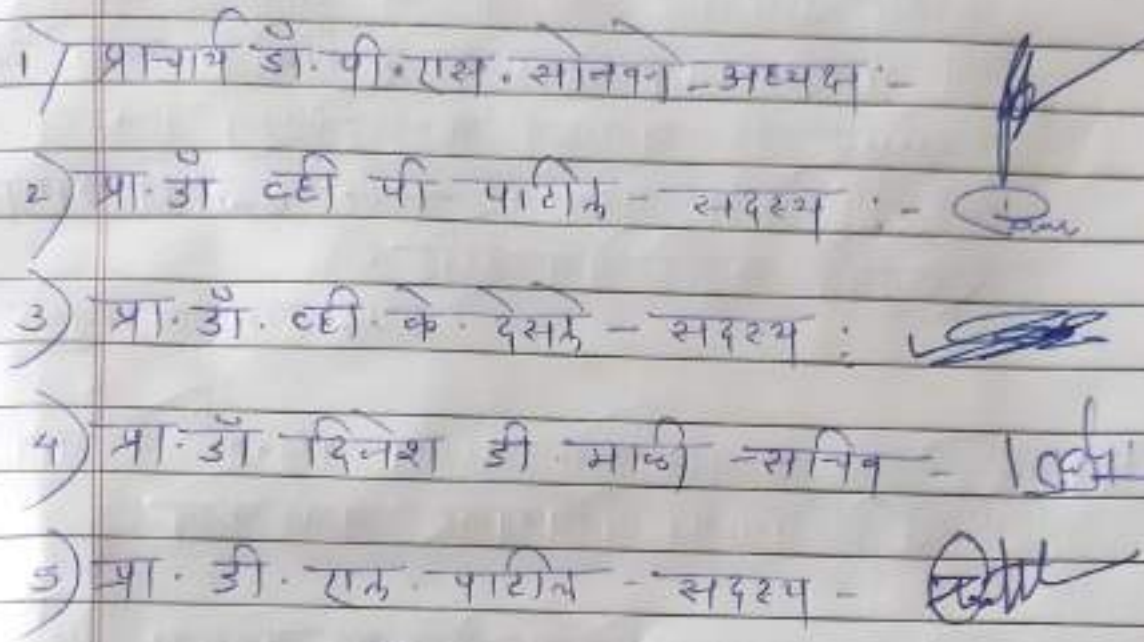 1) प्राचार्य डॉ. पी. एस. सोनवणे - अध्यक्ष :-
2) प्रा. डॉ. व्ही पी पाटील - सदस्य :-
3) प्रा. डॉ. व्ही. के. देसले - सदस्य :
4) प्रा. डॉ. दिनेश डी. माळी - सचिव -
5) प्रा. डी. एल. पाटील - सदस्य -